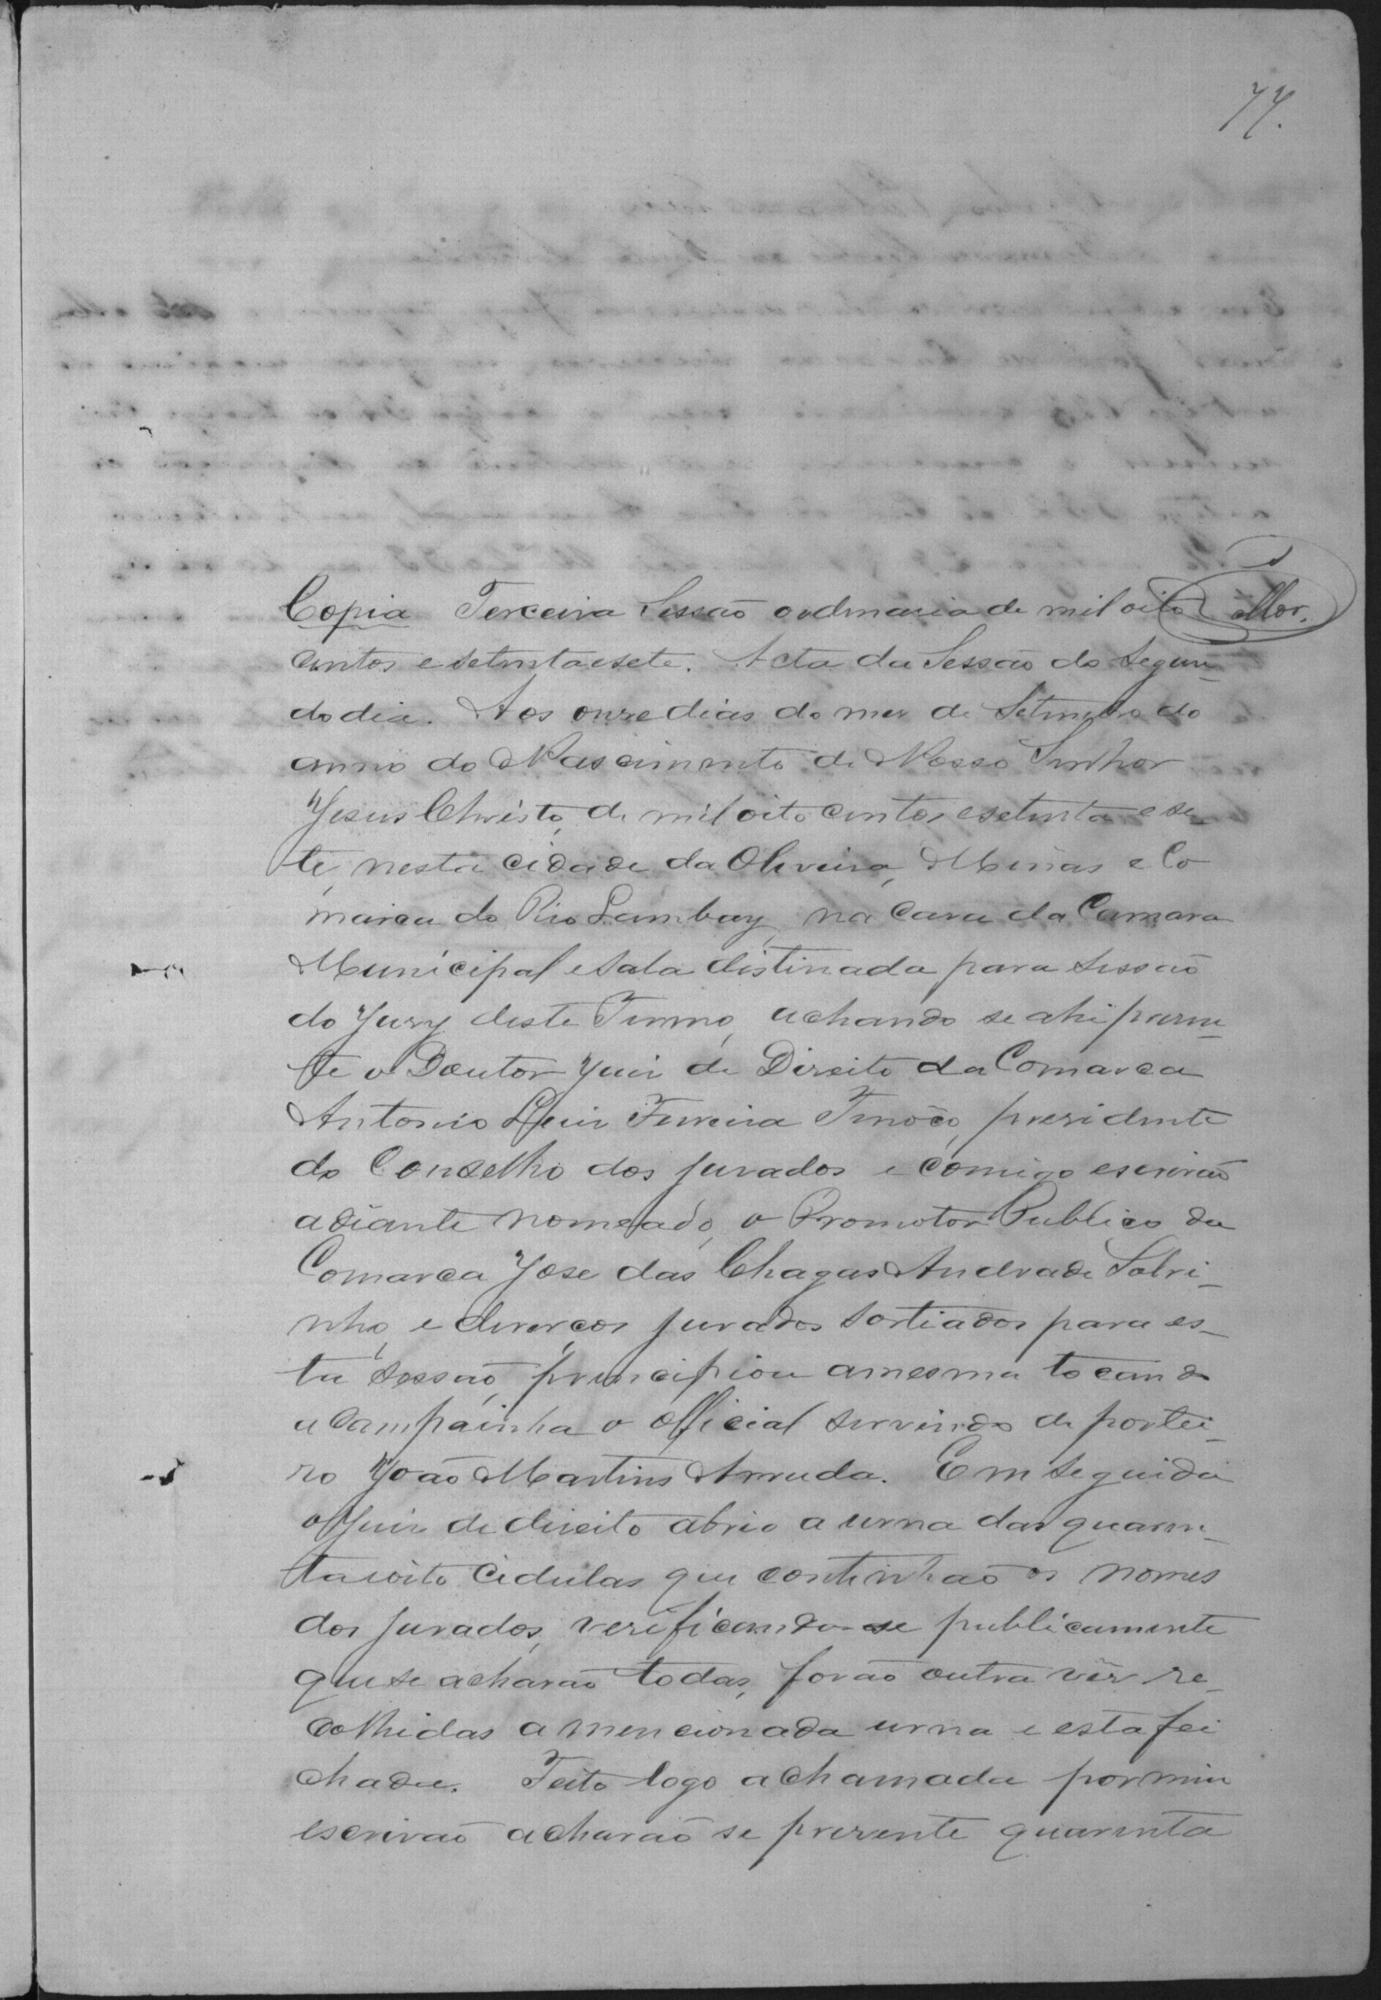 77.
Copia Terceira Sessão ordinaria de mil oito
centos e setenta e sete. Acta da Sessão do segun-
do dia. Aos onze dias do mez de Setembro do
anno do Nascimento de Nosso Senhor
Jesus Christo, de mil oito centos e setenta e se-
te, nesta cidade da Oliveira, Minas e Co
marca do Rio Lambary, na Casa da Camara
Municipal e sala distinada para sessão
do Jury deste Termo, achando se ahi presen-
te o Doutor Juiz de Direito da Comarca
Antonio Luiz Ferreira Tinôco, presidente
do Conselho dos jurados e comigo escrivão
adiante nomeado, o Promotor Publico da
Comarca Jose das Chagas Andrade Sobri-
nho, e diverços jurados sortiados para es-
ta sessão, principiou a mesma tocando
a campainha o official servindo de portei-
ro João Martins Arruda. Em seguida
o Juiz de direito abrio a urna das quaren-
ta e oito cidulas que continhão os nomes
dos jurados, verificando-se publicamente
que se acharão todas, forão outra vêz re-
colhidas a mencionada urna e esta fei
chada. Feito logo a chamada por mim
escrivão acharão se prezente quarenta